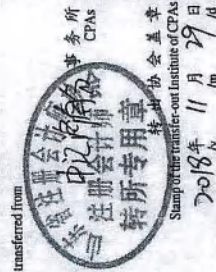 transferred from
事务所
CPAs
省注册会计师
注册会计师
转所专用章
转出协会盖章
Stamp of the transfer-out Institute of CPAs
2018年 11月 29日
/y /m /d